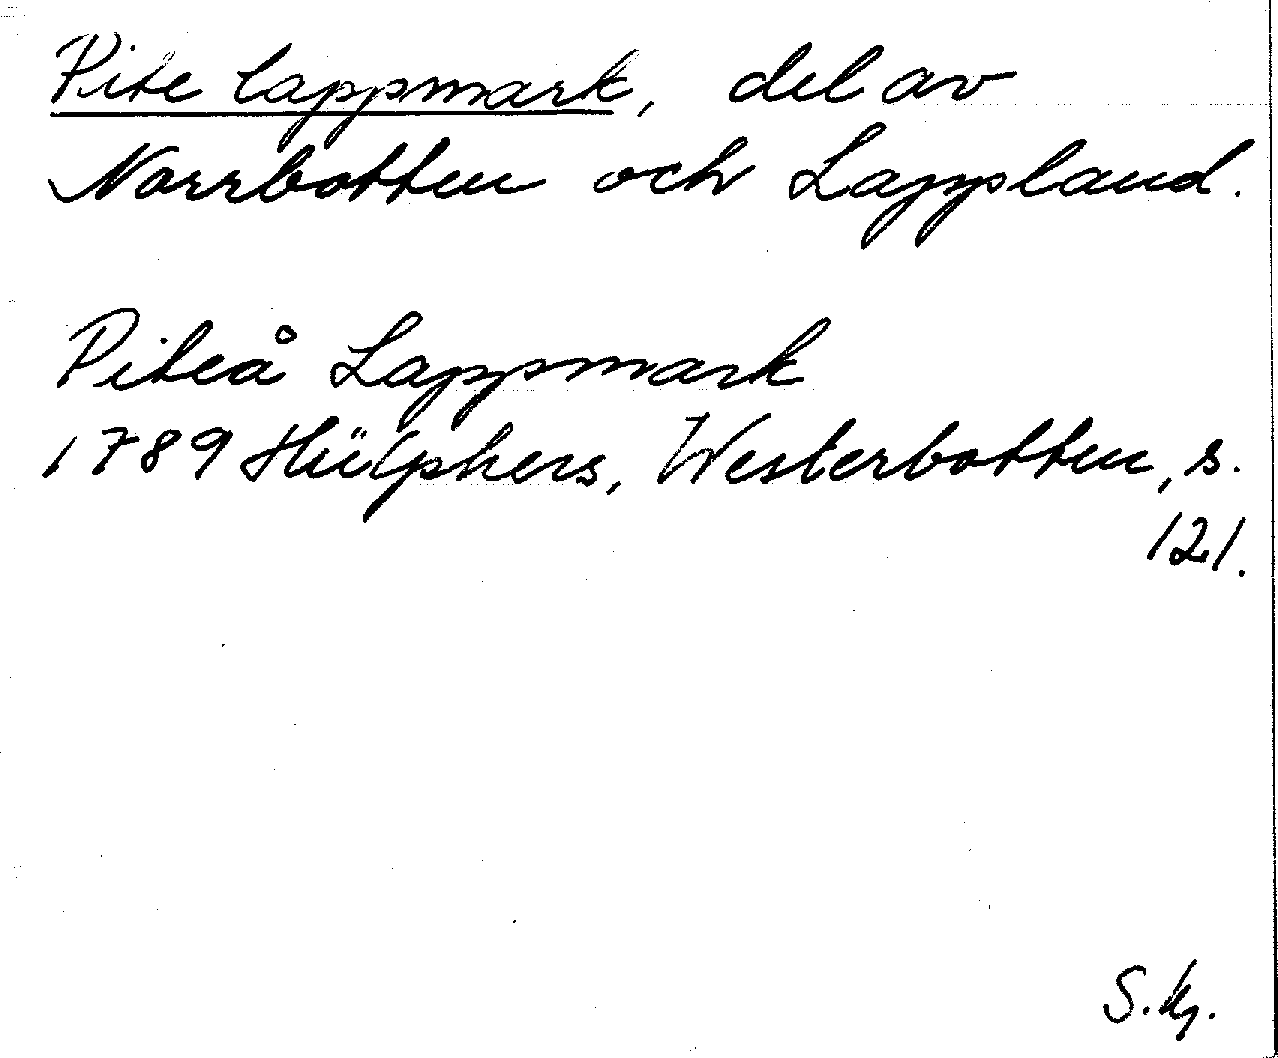 Pite lappmark, del av
Norrbotten och Lappland.
Piteå Lappmark
1789 Hülphers, Westerbotten, s.
121.
S.